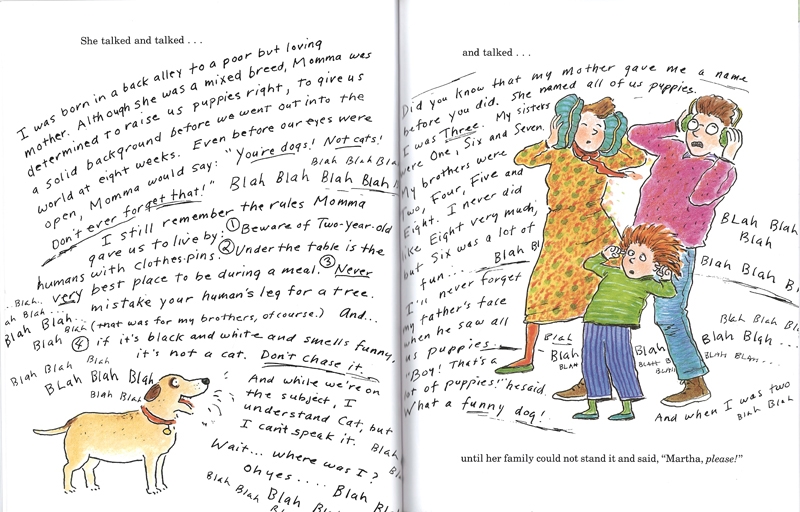 She talked and talked . . .
I was born in a back alley to a poor but loving
mother. Although she was a mixed breed, Momma was
determined to raise us puppies right, to give us
a solid background before we went out into the
world at eight weeks. Even before our eyes were
open, Momma would say: "You're dogs! Not cats!
Don't ever forget that!" Blah Blah Blah Blah
Blah Blah Bla
I still remember the rules Momma
gave us to live by: ① Beware of Two-year-old
humans with clothes-pins. ② Under the table is the
very best place to be during a meal. ③ Never
mistake your human's leg for a tree.
(that was for my brothers, of course.) And...
④ if it's black and white and smells funny,
it's not a cat. Don't chase it.
..Blah..
ah Blah...
Blah Blah..
Blah Blah
Blah Blah Blah
BLah Blah Blah
Blah Blah
And while we're on
the subject, I
understand Cat, but
I can't speak it. Blah
Wait... where was I?
Oh yes..... Blah Bl
Blah Blah Blah Blah
and talked . . .
Did you know that my Mother gave me a name
before you did. She named all of us puppies.
I was Three. My sisters
were One, Six and Seven.
My brothers were
Two, Four, Five and
Eight. I never did
like Eight very much,
but Six was a lot of
fun... Blah Bl
I'll never forget
my father's face
when he saw all
us puppies.
"Boy! That's a
lot of puppies!" he said.
What a funny dog!
BLah Blah
Blah
Blah Blah B
Blah Blah B
Blah Blah...
BLah BLah...
Blah
Blah
BLAH
Blah
BLah B
BLAH
And when I was two
BLah Blah
until her family could not stand it and said, "Martha, please!"